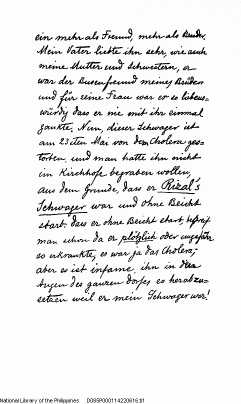 ein mehr als Freund, mehr als Bruder.
Mein Vater liebte ihn sehr, wie auch
meine Mutter und Schwestern, er
war der Busenfreund meines Bruders
und für seine Frau war er so liebens-
würdig dass er nie mit ihr einmal
zankte; Nun, dieser Schwager ist
am 23sten Mai von dem Cholera ges-
torben, und man hatte ihn nicht
im Kirchhofe begraben wollen,
aus dem Grunde, dass er Rizal's
Schwager war und ohne Beicht
starb. dass er ohne Beicht starb, begreift
man schon da er plötzlich oder ungefähr
so erkrankte, es war ja das Cholera;
aber es ist infame, ihn in den
Augen des ganzen Dorfes so herabzu-
setzen weil er mein Schwager war!
National Library of the Philippines D095P00011422061б.tif